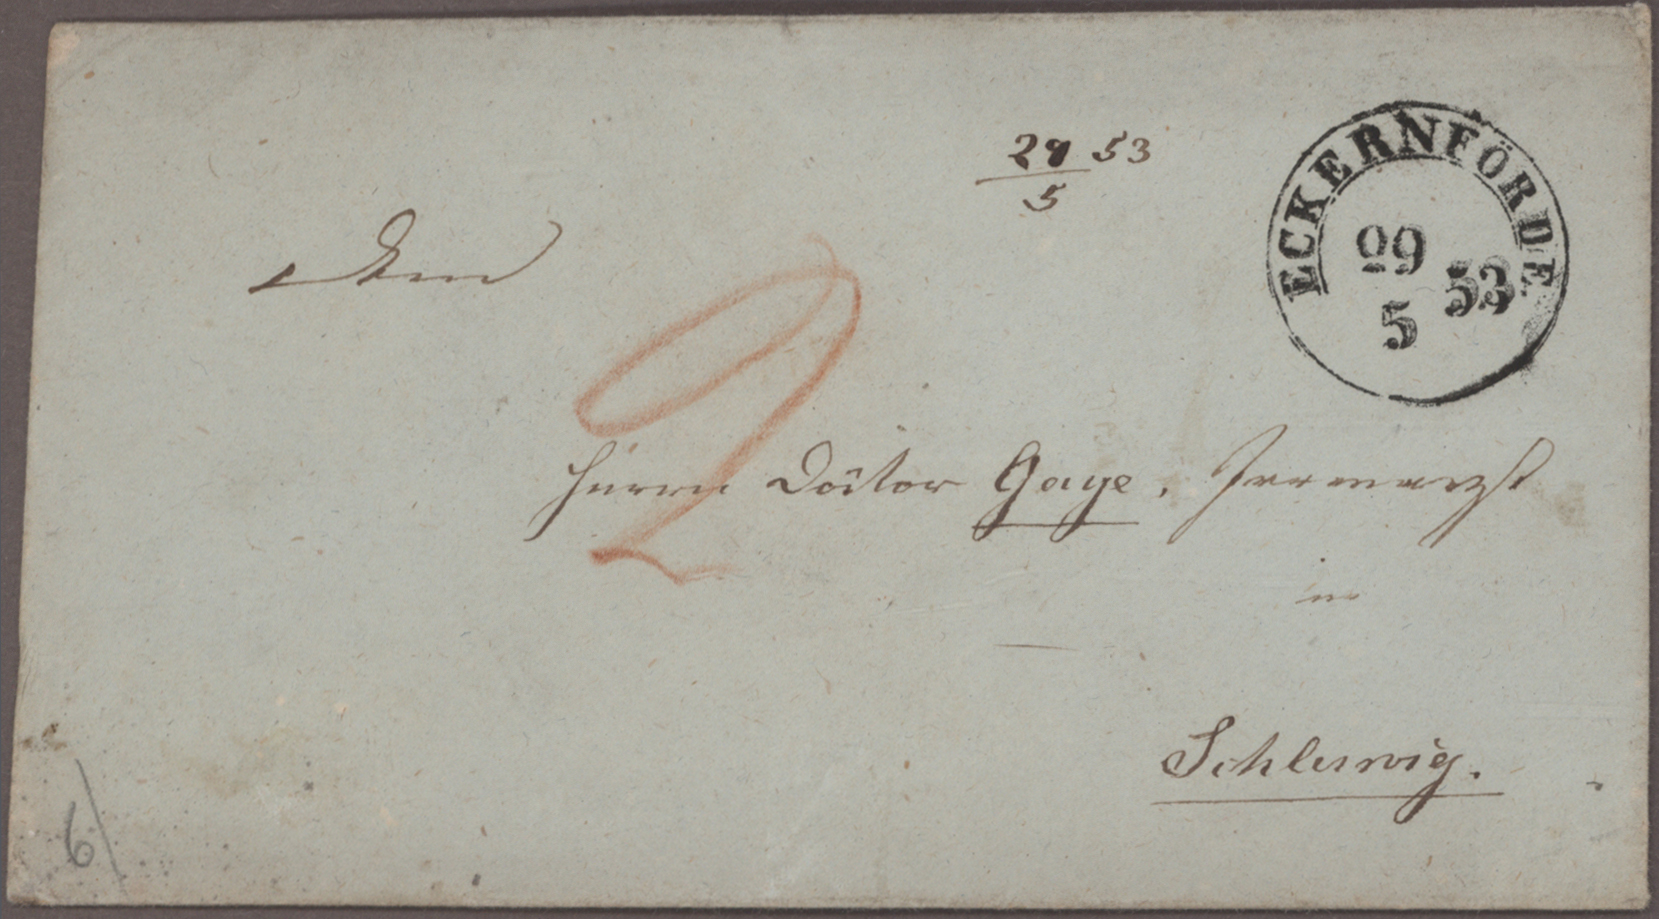 29 53
5
ECKERNFÖRDE
29
5 53
Dem
2
Herrn Doctor Gaye, Irrenarzt
in
Schleswig.
6/